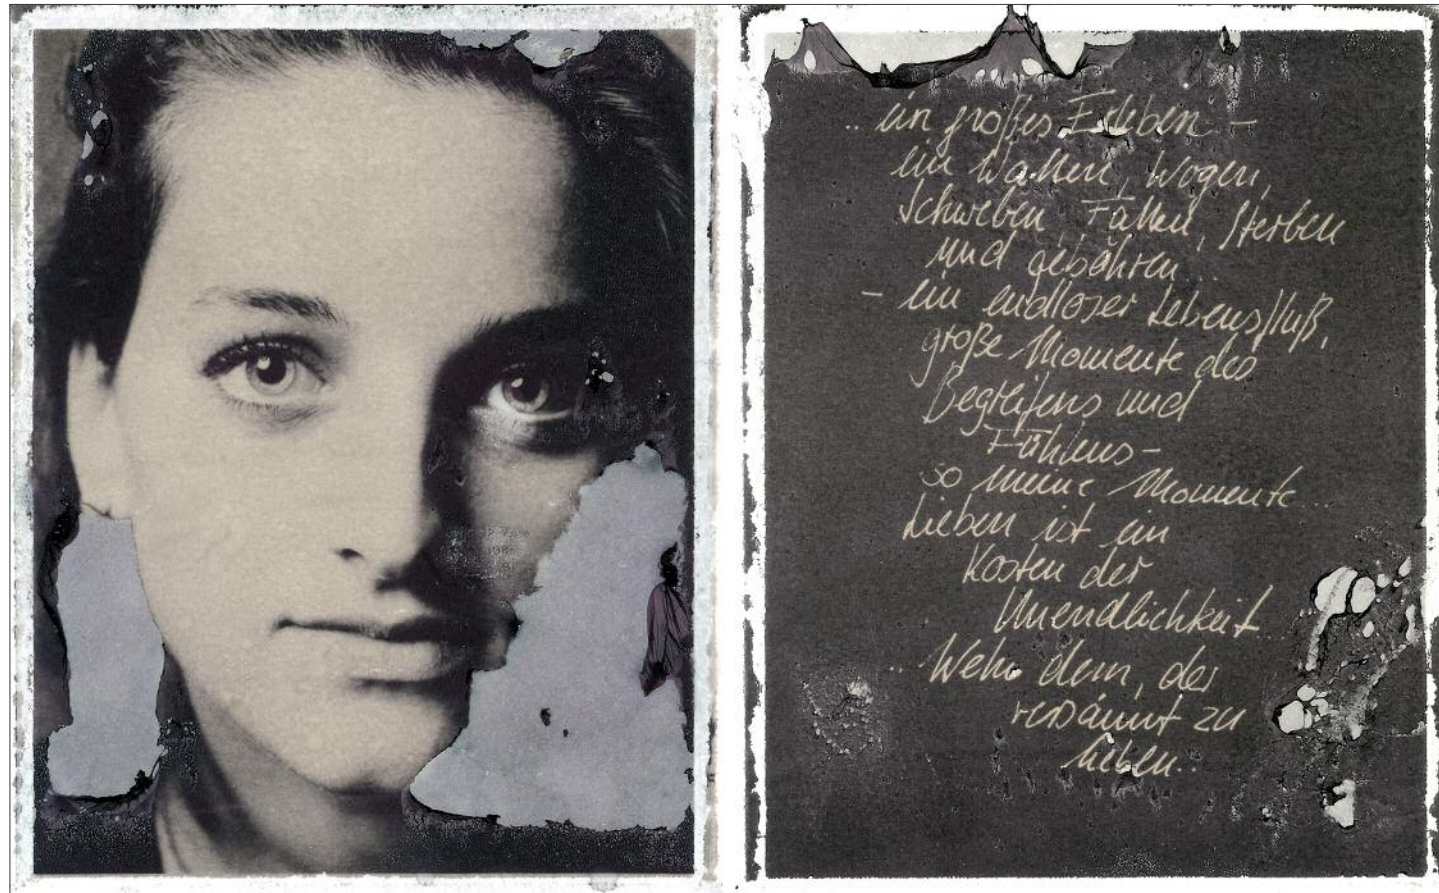 .. ein großes Erleben –
ein Wallen, Wogen,
Schweben, Fallen, Sterben
und gebähren...
– ein endloser Lebensfluß,
große Momente des
Begreifens und
Fühlens –
so meine Momente...
Lieben ist ein
Kosten der
Unendlichkeit..
.. Wehe dem, der
versäumt zu
lieben..